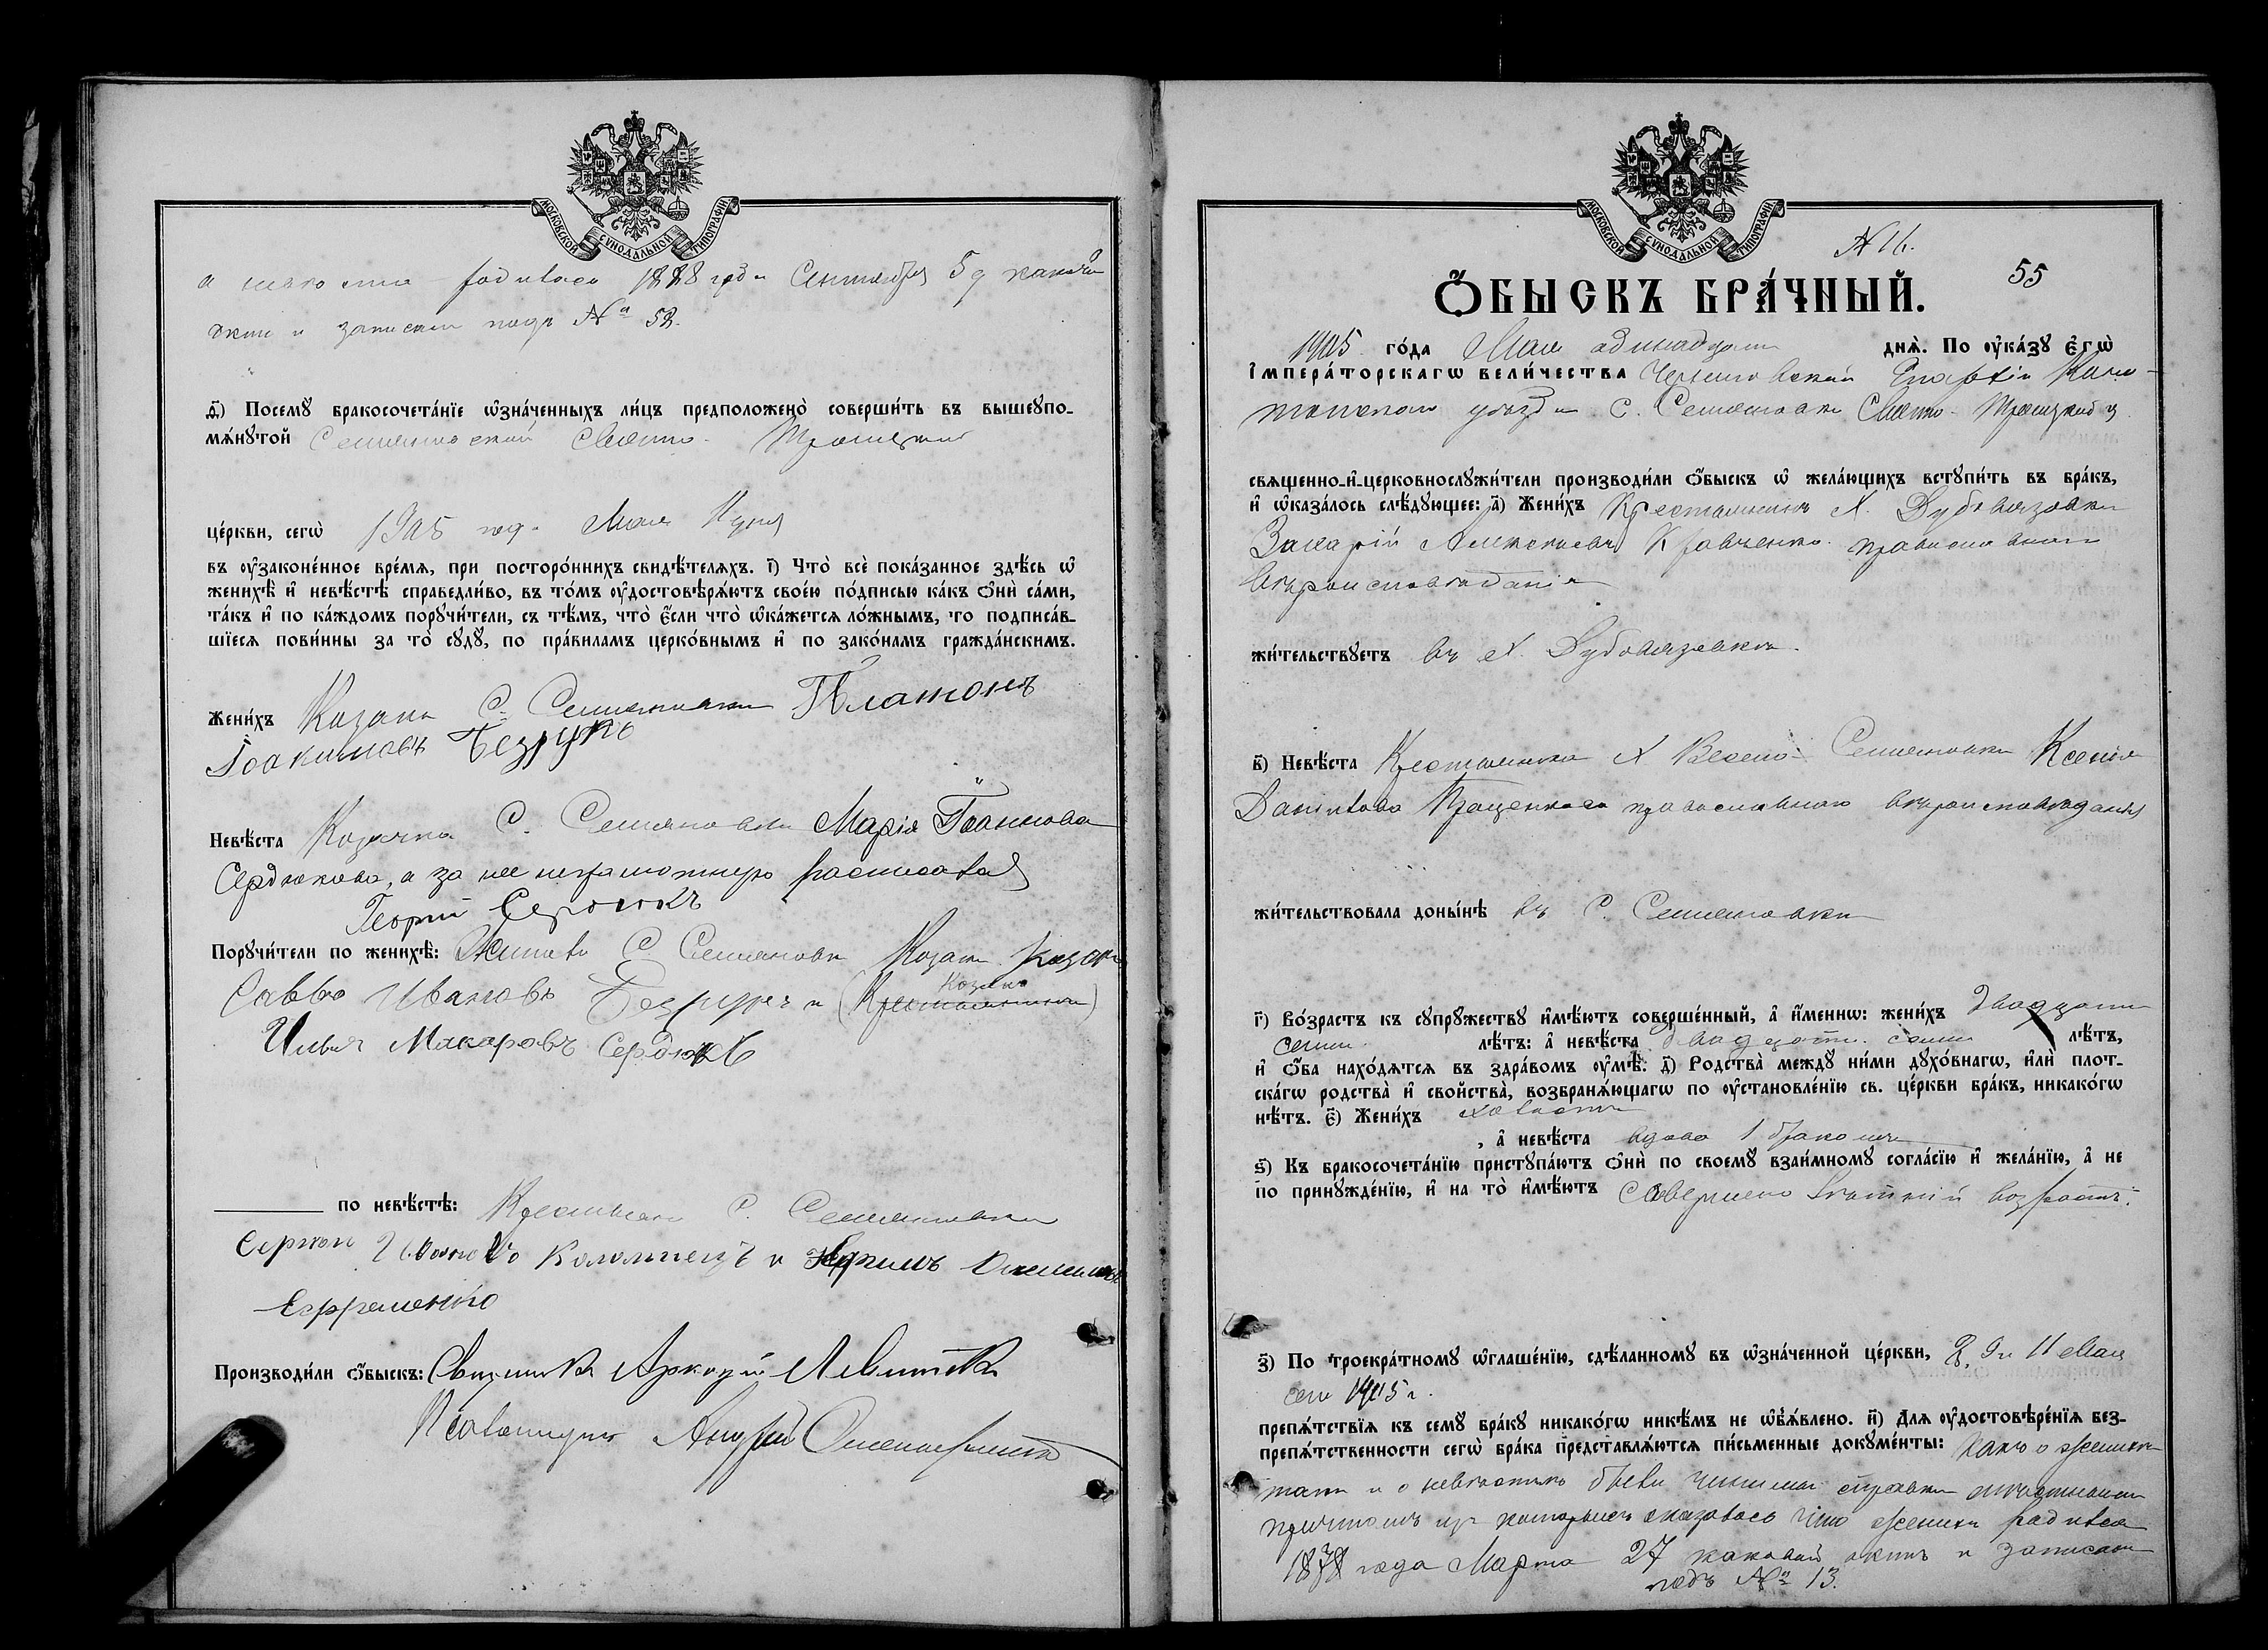 МОСКОВСКОЙ СѴНОДАЛЬНОЙ ТИПОГРАФІИ
родилась 1888 года Сентября 5 д каковой
актъ и записанъ подъ № 52.
д҃) Посемꙋ бракосочета́нїе ѡ҆зна́ченныхъ ли́цъ предположено̀ соверши́ть въ вышеꙋпо-
мѧ́нꙋтой Семяновской Свято-Троицкой
це́ркви, сегѡ̀ 1905 года Мая
въ ᲂу҆законе́нное вре́мѧ, при посторо́ннихъ свидѣ́телѧхъ. і҃) Что̀ всѐ пока́занное здѣ́сь ѡ҆
женихѣ̀ и҆ невѣ́стѣ справедли́во, въ то́мъ ᲂу҆достовѣрѧ́ютъ свое́ю по́дписью ка́къ ѻ҆нѝ са́ми,
та́къ и҆ по ка́ждомъ порꙋчи́тели, съ тѣ́мъ, что̀ є҆́сли что̀ ѡ҆ка́жетсѧ ло́жнымъ, то подписа́в-
шїесѧ пови́нны за то̀ сꙋдꙋ̀, по пра́виламъ церко́внымъ и҆ по зако́намъ гражда́нскимъ.
Жени́хъ Козакъ С. Семяновки Платонъ
Іоакимовъ Безрукъ
Невѣ́ста Козачка С. Семяновки Марія Іоаннова
Сердюкова, а за нее неграмотную росписался
Георгій Сердюкъ
Порꙋчи́тели по женихѣ̀: Жители С. Семяновки Козаки Козакъ
Савва Ивановъ Безрукъ и (Крестьянинъ) Козакъ
Илья Макаровъ Сердюкъ
по невѣ́стѣ: Крестьяне С. Семяновки
Коломиецъ и
Ефременко
Производи́ли ѻ҆́быскъ: Священникъ Аркадій Левитскій
Псаломщикъ Андрей
МОСКОВСКОЙ СѴНОДАЛЬНОЙ ТИПОГРАФІИ
N 16.
55
Ѻ҆́БЫСКЪ БРА́ЧНЫЙ.
1905 го́да Мая одинадцати днѧ̀. По ᲂу҆ка́зꙋ є҆гѡ̀
і҆мпера́торскагѡ вели́чества Черниговской Епархіи Коно-
топскаго уѣзда С. Семяновки Свято-Троицкой ц.
свѧщенно-и҆-церковнослꙋжи́тели производи́ли ѻ҆́быскъ ѡ҆ жела́ющихъ встꙋпи́ть въ бра́къ,
и҆ ѡ҆каза́лось слѣ́дꙋющее: а҃) Жени́хъ Крестьянинъ Х. Дубовязовки
Захарій Алексіевъ Кравченко православнаго
вѣроисповѣданія
жи́тельствꙋетъ въ Х. Дубовязовкѣ.
в҃) Невѣ́ста Крестьянка Х Весело-Семяновки Ксенія
Даніилова Проценкова православнаго вѣроисповѣданія
жи́тельствовала доны́нѣ въ С. Семяновкѣ
г҃) Во́зрастъ къ сꙋпрꙋ́жествꙋ и҆мѣ́ютъ соверше́нный, а҆ и҆́меннѡ: жени́хъ двадцати
семи лѣ́тъ: а҆ невѣ́ста двадцати семи лѣ́тъ,
и҆ ѻ҆́ба нахо́дѧтсѧ въ здра́вомъ ᲂу҆мѣ̀. д҃) Родства̀ междꙋ̀ ни́ми дꙋхо́внагѡ, и҆лѝ плот-
ска́гѡ родства̀ и҆ свойства̀, возбранѧ́ющагѡ по ᲂу҆становле́нїю св. це́ркви бра́къ, никако́гѡ
нѣ́тъ. є҃) Жени́хъ холостъ
, а҆ невѣ́ста вдова 1 бракомъ
ѕ҃) Къ бракосочета́нїю пристꙋпа́ютъ ѻ҆нѝ по своемꙋ̀ взаи́мномꙋ согла́сїю и҆ жела́нїю, а҆ не
по принꙋжде́нїю, и҆ на то̀ и҆мѣ́ютъ Совершенолѣтній возрастъ.
з҃) По троекра́тномꙋ ѡ҆глаше́нїю, сдѣ́ланномꙋ въ ѡ҆зна́ченной це́ркви, 8, 9 и 11 Мая
сего 1905 г.
препѧ́тствїѧ къ семꙋ̀ бра́кꙋ никако́гѡ никѣ́мъ не ѡ҆б̾ѧ́влено. и҃) Длѧ ᲂу҆достовѣре́нїѧ без-
препѧ́тственности сегѡ̀ бра́ка представлѧ́ютсѧ пи́сьменные докꙋме́нты: какъ о женихѣ
такъ и о невѣстѣ были чинимы справки
причтомъ изъ которыхъ оказалось что женихъ родился
1878 года Марта 27 каковой актъ и записанъ
подъ № 13.